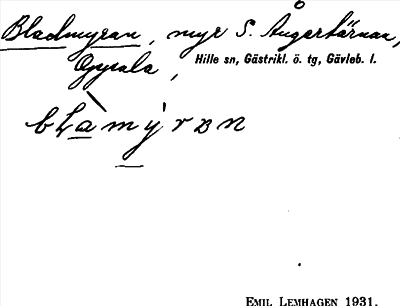 Bladmyran, myr S. Ångertärnan,
Oppala,
Hille sn, Gästrikl. ö. tg, Gävleb. l.
EMIL LEMHAGEN 1931.